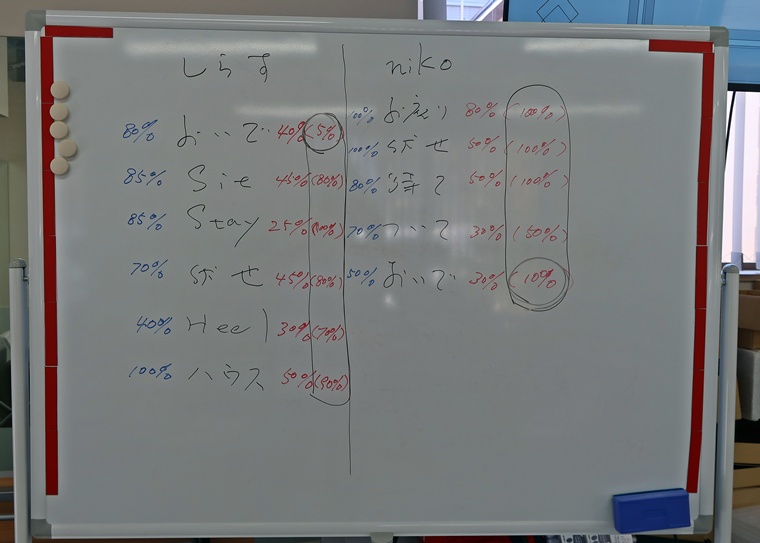 しらす
80% おいで 40% (5%)
85% Sit 45% (80%)
85% Stay 25% (100%)
70% ふせ 45% (80%)
40% Heel 30% (70%)
100% ハウス 50% (90%)
niko
100% お座り 80% (100%)
100% ふせ 50% (100%)
80% 待て 50% (100%)
70% ついて 30% (50%)
50% おいで 30% (10%)